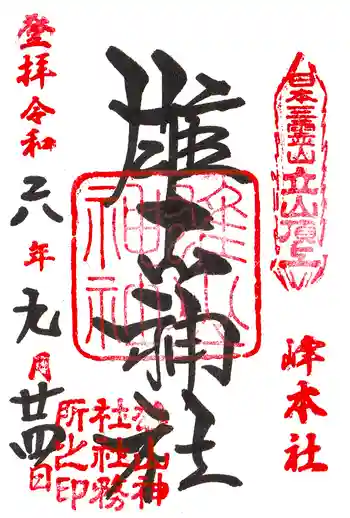 日本三霊山 立山頂上
峰本社
雄山神社
雄山神社
雄山神
社社務
所之印
登拝令和六年九月廿四日